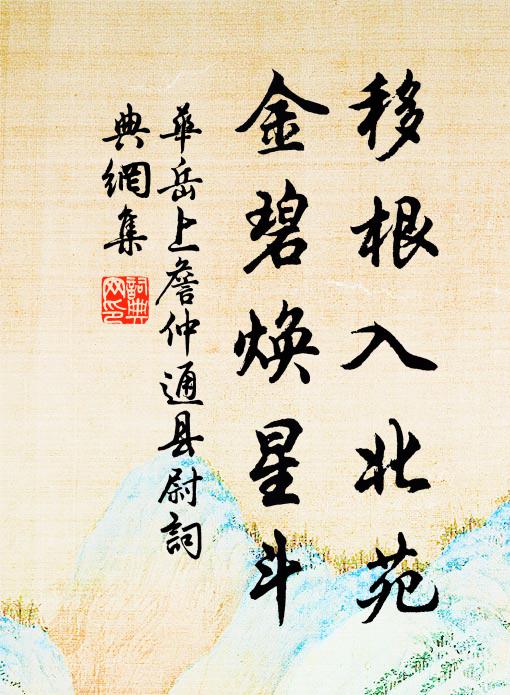 移根入北苑
金碧煥星斗
華岳上詹仲通县尉詞
典網集
詞典
网印